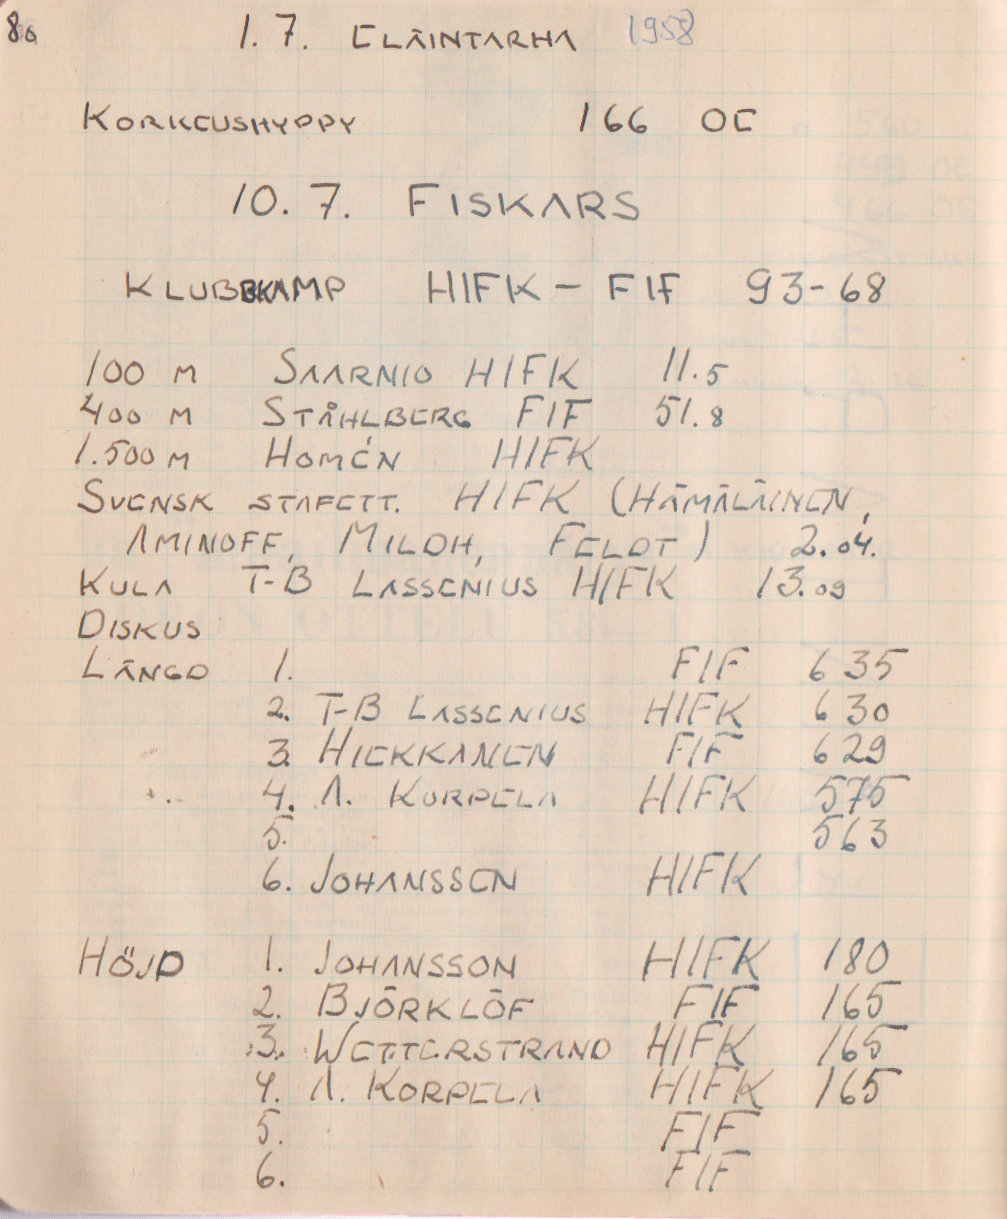 80
1.7. ELÄINTARHA 1958
KORKEUSHYPPY 166 OE
10.7. FISKARS
KLUBBKAMP HIFK – FIF 93-68
100 M SAARNIO HIFK 11.5
400 M STÅHLBERG FIF 51.8
1.500 M HOMÉN HIFK
SVENSK STAFETT. HIFK (HÄMÄLÄINEN,
AMINOFF, MILDH, FELDT) 2.04.
KULA T-B LASSENIUS HIFK 13.09
DISKUS
LÄNGD 1. FIF 635
2. T-B LASSENIUS HIFK 630
3. HIEKKANEN FIF 629
4. A. KORPELA HIFK 575
5. 563
6. JOHANSSEN HIFK
HÖJD 1. JOHANSSON HIFK 180
2. BJÖRKLÖF FIF 165
3. WETTERSTRAND HIFK 165
4. A. KORPELA HIFK 165
5. FIF
6. FIF